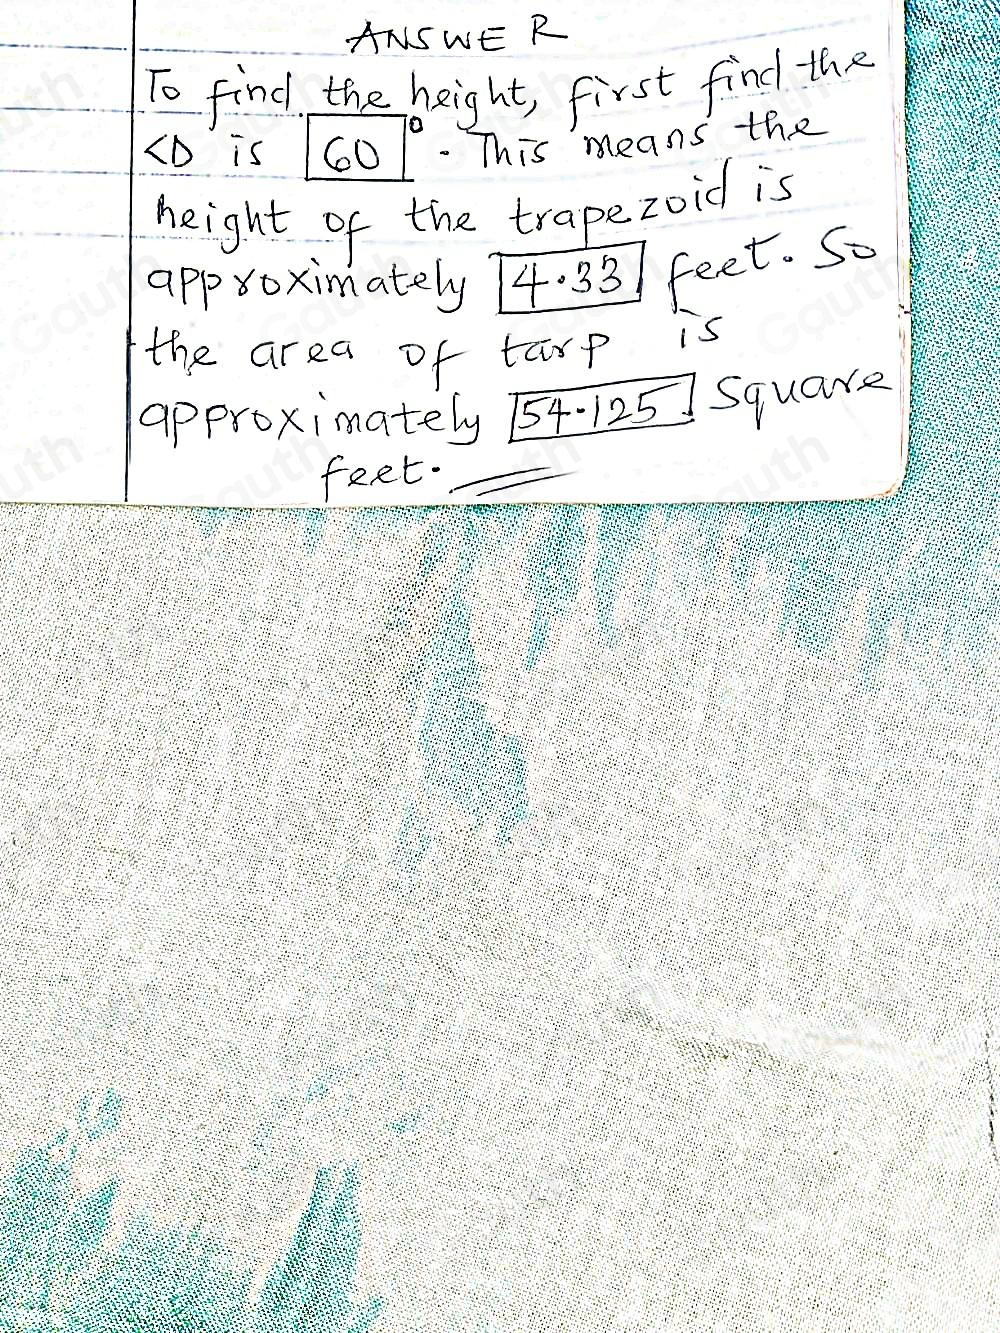 ANSWER
To find the height, first find the
<D is 60°. This means the
height of the trapezoid is
approximately 4.33 feet. So
the area of tarp is
approximately 54.125 square
feet.